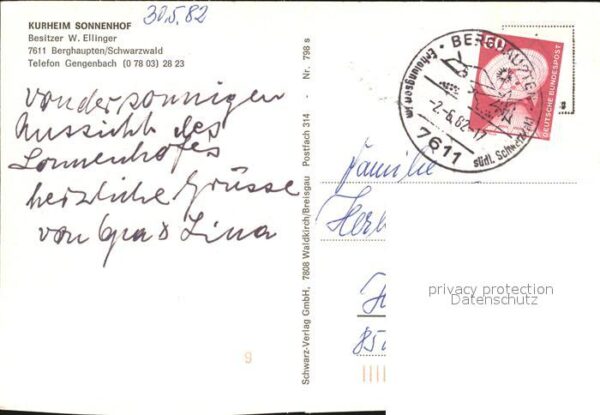 30.5.82
KURHEIM SONNENHOF
Besitzer W. Ellinger
7611 Berghaupten/Schwarzwald
Telefon Gengenbach (0 78 03) 28 23
von der sonnigen
Aussicht des
Sonnenhofes
herzliche Grüsse
von Opa & Lina
9
Schwarz-Verlag GmbH, 7808 Waldkirch/Breisgau Postfach 314 - Nr. 798 s
BERGHAUPTE
Erholungsort im
südl. Schwarzw
-2.-6.82-17
7611
DEUTSCHE BUNDESPOST
Familie
Her
85
privacy protection
Datenschutz